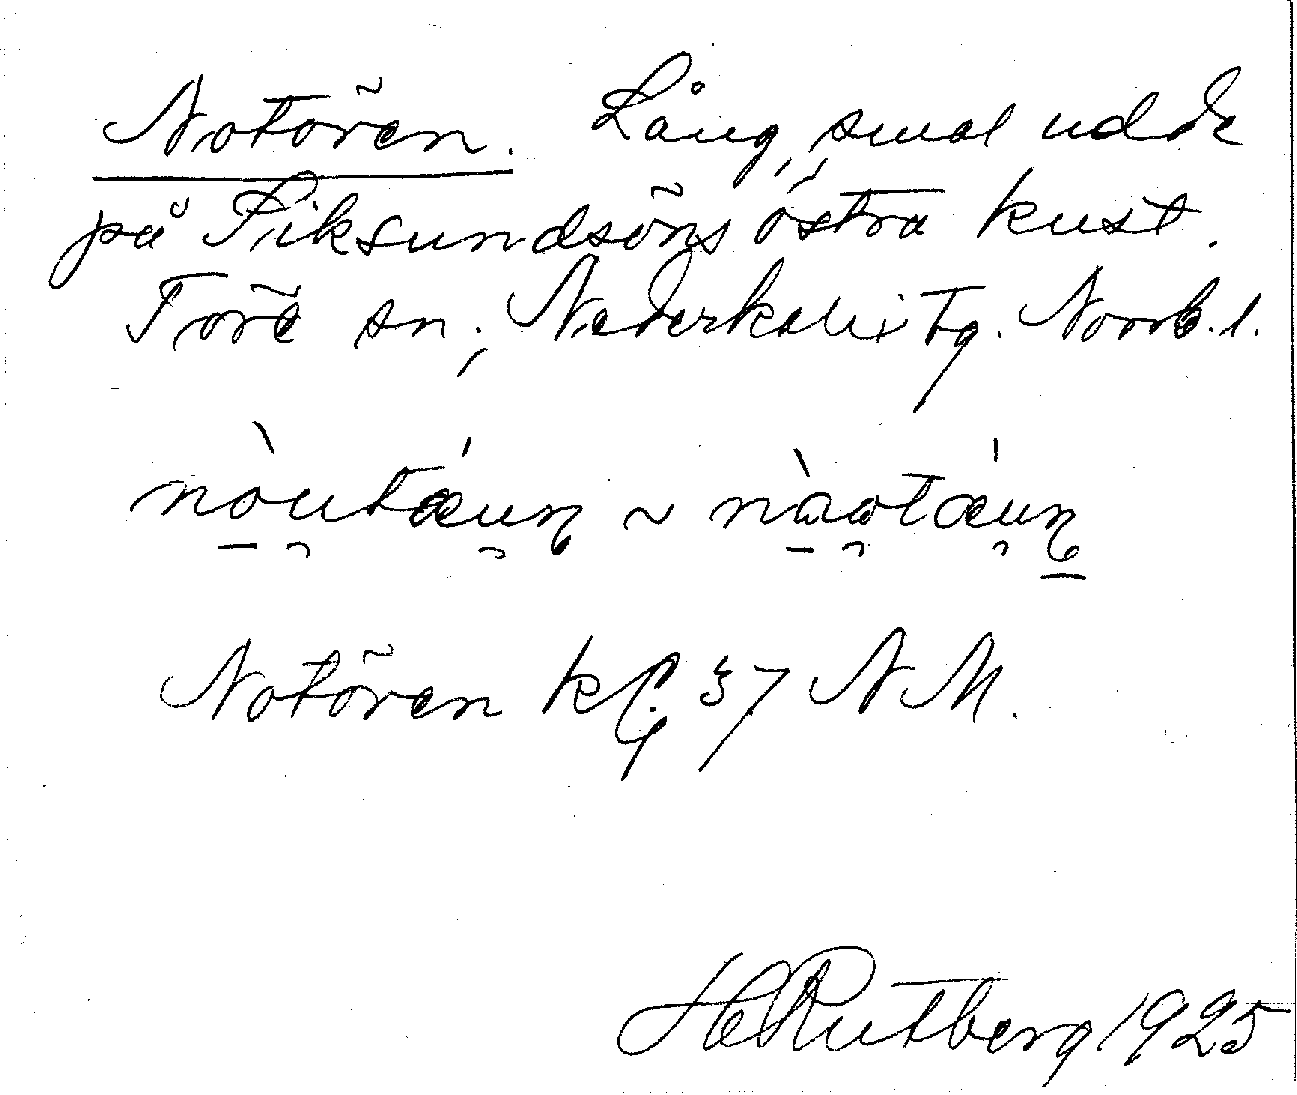 Notören. Lång, smal udde
på Siksundsöns östra kust.
Töre sn, Nederkalix tg. Norrb. l.
nòutáun ~ nàotáun
Notören kf. 37 NM.
H Rutberg 1925